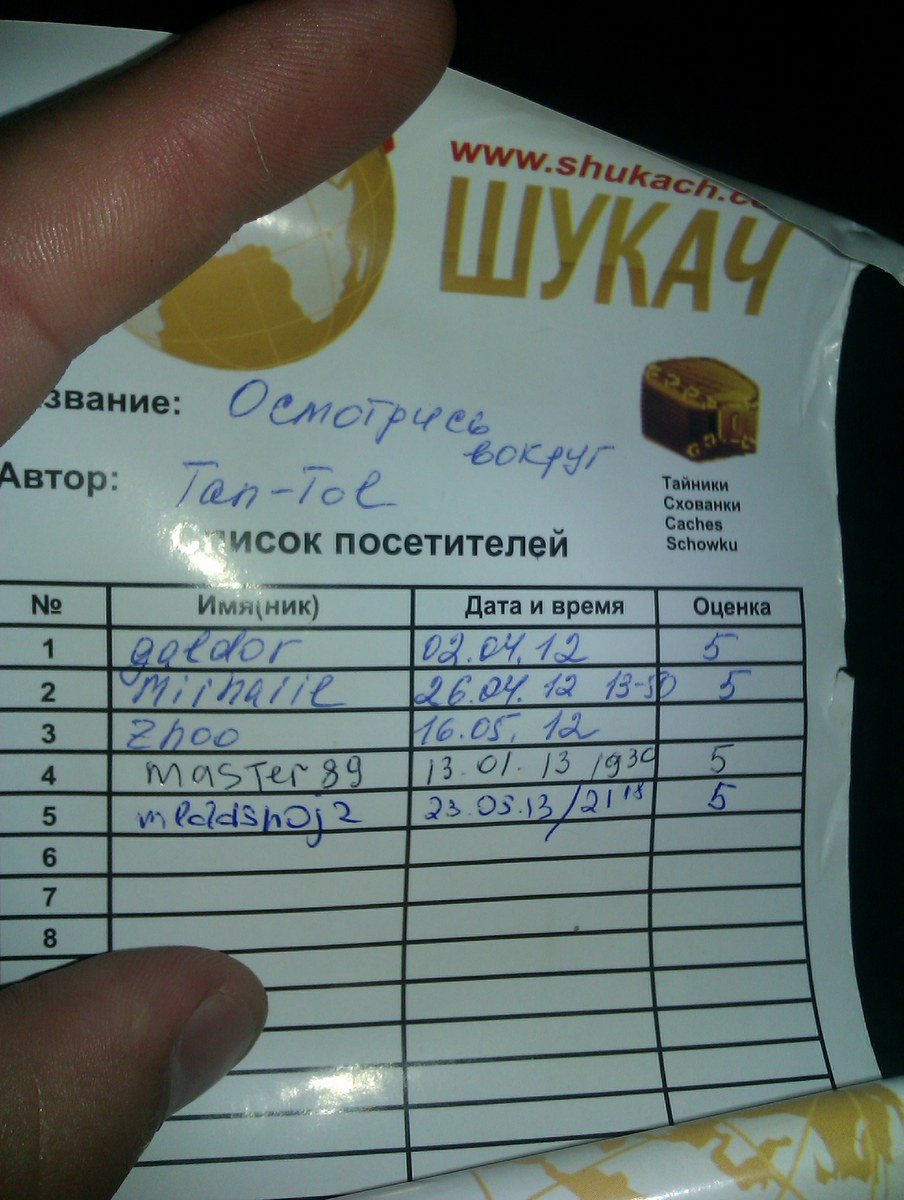 www.shukach.co
ШУКАЧ
звание: Осмотрись
вокруг
Автор: Tan-Tol
Тайники
Схованки
Caches
Schowku
Список посетителей
№ Имя(ник) Дата и время Оценка
1 galdor 02.04.12 5
2 26.04.12 13-50 5
3 Zhoo 16.05.12
4 master89 13.01.13 19 30 5
5 23.05.13/21 18 5
6
7
8